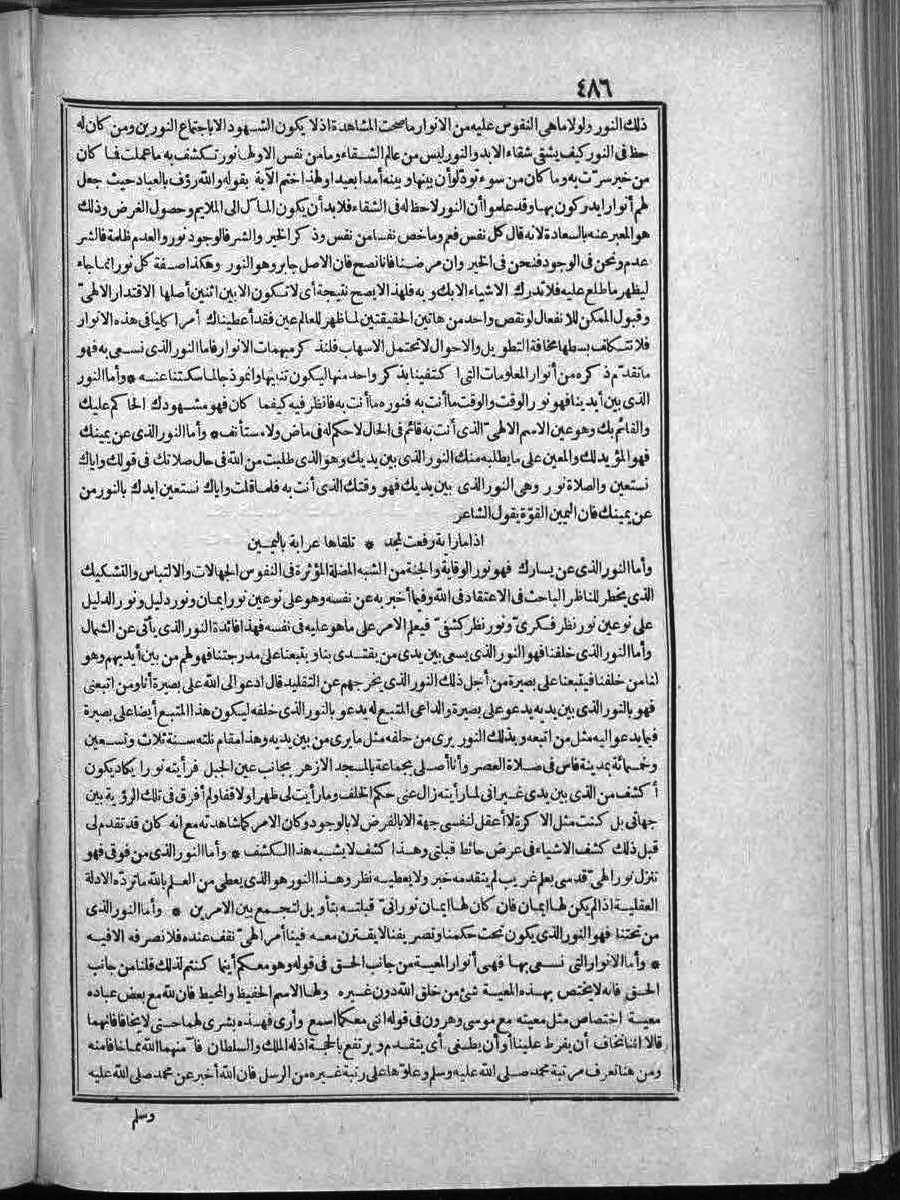 ٤٨٦
ذلك النور ولولا ما هى النفوس عليه من الانوار ما صحت المشاهدة اذ لا يكون الشهود الا باجتماع النورين ومن كان له
حظ فى النور كيف يشقى شقاء الابد والنور ليس من عالم الشقاء وما من نفس الا ولها نور تكشف به ما عملت فما كان
من خير سرّت به وما كان من سوء تودّ لو أن بينها وبينه أمدا بعيدا ولهذا ختم الآية بقوله والله رؤف بالعباد حيث جعل
لهم أنوارا يدركون بها وقد علموا أن النور لا حظ له فى الشقاء فلا بد أن يكون المآل الى الملايم وحصول الغرض وذلك
هو المعبر عنه بالسعادة لانه قال كل نفس فعم وما خص نفسا من نفس وذكر الخير والشر فالوجود نور والعدم ظلمة فالشر
عدم ونحن فى الوجود فنحن فى الخير وان مرضنا فانا نصح فان الاصل جابر وهو النور وهكذا صفة كل نور انما جاء
ليظهر ما طلع عليه فلا تدرك الاشياء الا بك وبه فلهذا لا يصح نتيجة أى لا تكون الا بين اثنين أصلها الاقتدار الالهىّ
وقبول الممكن للانفعال لو نقص واحد من هاتين الحقيقتين لما ظهر للعالم عين فقد أعطيناك أمرا كليا فى هذه الانوار
فلا تتكلف بسطها مخافة التطويل والاحوال لا تحتمل الاسهاب فلنذكر مبهمات الانوار فاما النور الذى نسعى به فهو
ما تقدّم ذكره من أنوار المعلومات التى اكتفينا بذكر واحد منها ليكون تنبيها وانموذجا لما سكتنا عنه * وأما النور
الذى بين أيدينا فهو نور الوقت والوقت ما أنت به فنوره ما أنت به فانظر فيه كيفما كان فهو مشهودك الحاكم عليك
والقائم بك وهو عين الاسم الالهىّ الذى أنت به قائم فى الحال لا حكم له فى ماض ولا مستأنف * وأما النور الذى عن يمينك
فهو المؤيد لك والمعين على ما يطلبه منك النور الذى بين يديك وهو الذى طلبت من الله فى حال صلاتك فى قولك واياك
نستعين والصلاة نور وهى النور الذى بين يديك فهو وقتك الذى أنت به فلما قلت واياك نستعين ايدك بالنور من
عن يمينك فان اليمين القوّة يقول الشاعر
اذا ما راية رفعت لمجد * تلقاها عرابة باليمين
وأما النور الذى عن يسارك فهو نور الوقاية والجنة من الشبه المضلة المؤثرة فى النفوس الجهالات والالتباس والتشكيك
الذى يخطر للناظر الباحث فى الاعتقاد فى الله وفيما أخبر به عن نفسه وهو على نوعين نور ايمان ونور دليل ونور الدليل
على نوعين نور نظر فكرىّ ونور نظر كشفىّ فيعلم الامر على ما هو عليه فى نفسه فهذا فائدة النور الذى يأتى عن الشمال
وأما النور الذى خلفنا فهو النور الذى يسعى بين يدى من يقتدى بنا ويتبعنا على مدرجتنا فهو لهم من بين أيديهم وهو
لنا من خلفنا فيتبعنا على بصيرة من أجل ذلك النور الذى يخرجهم عن التقليد قال ادعو الى الله على بصيرة أنا ومن اتبعنى
فهو بالنور الذى بين يديه يدعو على بصيرة والداعى المتبع له يدعو بالنور الذى خلفه ليكون هذا المتبع أيضا على بصيرة
فيما يدعو اليه مثل من اتبعه وبذلك النور يرى من خلفه مثل ما يرى من بين يديه وهذا مقام نلته سنة ثلاث وتسعين
وخمسمائة بمدينة فاس فى صلاة العصر وأنا أصلى بجماعة بالمسجد الازهر بجانب عين الجبل فرأيته نورا يكاد يكون
أكشف من الذى بين يدى غير انى لما رأيته زال عنى حكم الخلف وما رأيت لى ظهرا ولا قفا ولم أفرق فى تلك الرؤية بين
جهاتى بل كنت مثل الاكرة لا أعقل لنفسى جهة الا بالفرض لا بالوجود وكان الامر كما شاهدته مع انه كان قد تقدم لى
قبل ذلك كشف الاشياء فى عرض حائط قبلتى وهذا كشف لا يشبه هذا الكشف * وأما النور الذى من فوقى فهو
تنزل نور الهىّ قدسى بعلم غريب لم يتقدمه خبر ولا يعطيه نظر وهذا النور هو الذى يعطى من العلم بالله ما تردّه الادلة
العقلية اذا لم يكن لها ايمان فان كان لها ايمان نورانىّ قبلته بتأويل لتجمع بين الامرين * وأما النور الذى
من تحتنا فهو النور الذى يكون تحت حكمنا وتصريفنا لا يقترن معه فينا أمر الهىّ نقف عنده فلا نصرفه الا فيه
* وأما الانوار التى نسعى بها فهى أنوار المعية من جانب الحق فى قوله وهو معكم أينما كنتم لذلك قلنا من جانب
الحق فانه لا يختص بهذه المعية شئ من خلق الله دون غيره ولها الاسم الحفيظ والمحيط فان لله مع بعض عباده
معية اختصاص مثل معيته مع موسى وهرون فى قوله اننى معكما اسمع وأرى فهذه بشرى لهما حتى لا يخافا فانهما
قالا اننا نخاف أن يفرط علينا أو أن يطغى أى يتقدم ويرتفع بالحجة اذ له الملك والسلطان فآمنهما الله مما خافا منه
ومن هنا تعرف مرتبة محمد صلى الله عليه وسلم وعلوّها على رتبة غيره من الرسل فان الله أخبر عن محمد صلى الله عليه
وسلم